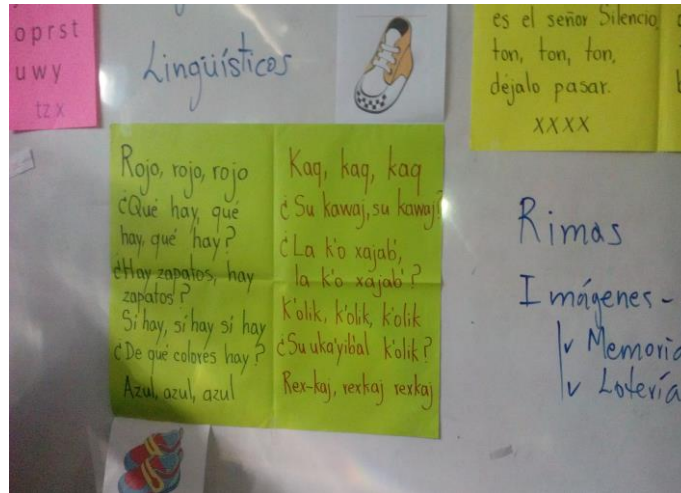 oprst
uwy
tzx
Lingüísticos
es el señor Silencio
ton, ton, ton,
déjalo pasar.
xxxx
Rojo, rojo, rojo
¿Qué hay, qué
hay, qué hay?
¿Hay zapatos, hay
zapatos?
Sí hay, sí hay sí hay
¿De qué colores hay?
Azul, azul, azul
Kaq, kaq, kaq
¿Su kawaj, su kawaj?
¿La k'o xajab',
la k'o xajab'?
K'olik, k'olik, k'olik
¿Su uka'yib'al k'olik?
Rex-kaj, rexkaj rexkaj
Rimas
Imágenes -
v Memoria
v Lotería